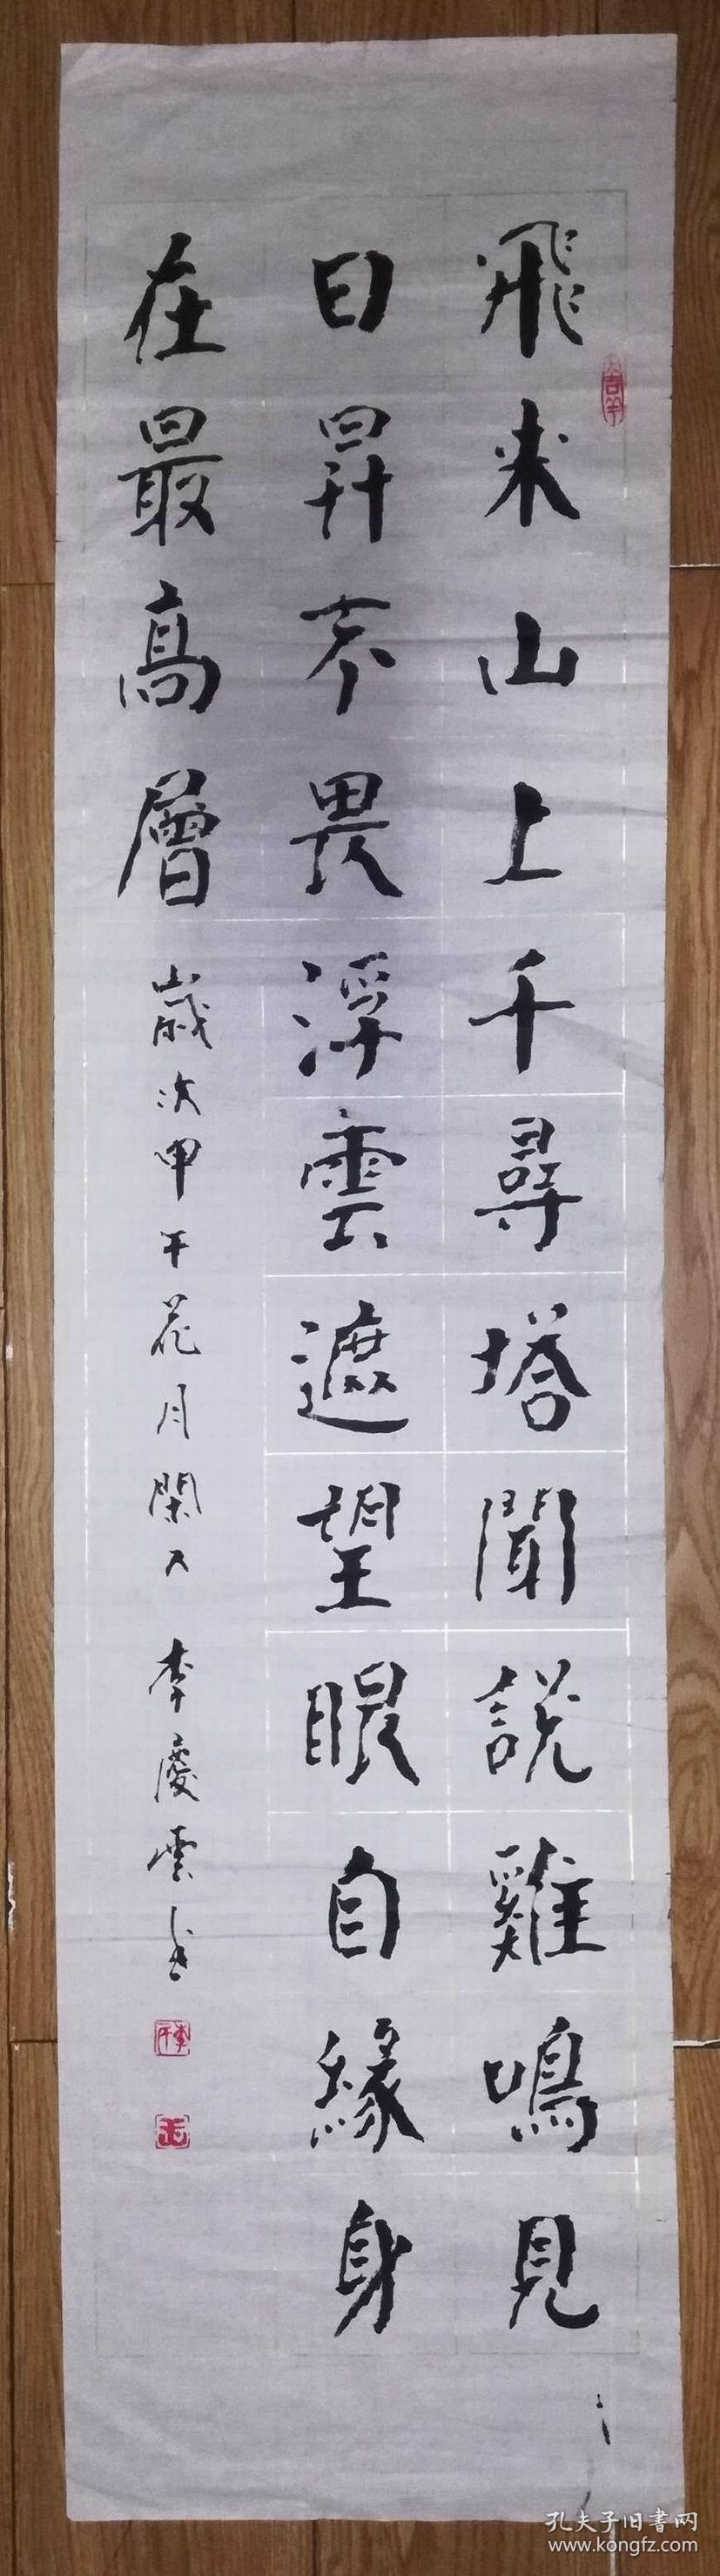 飛来山上千尋塔聞說雞鳴見
日昇不畏浮雲遮望眼自緣身
在最高層
歲次甲午花月閑人李慶雲書
孔夫子旧書网
www.kongfz.com